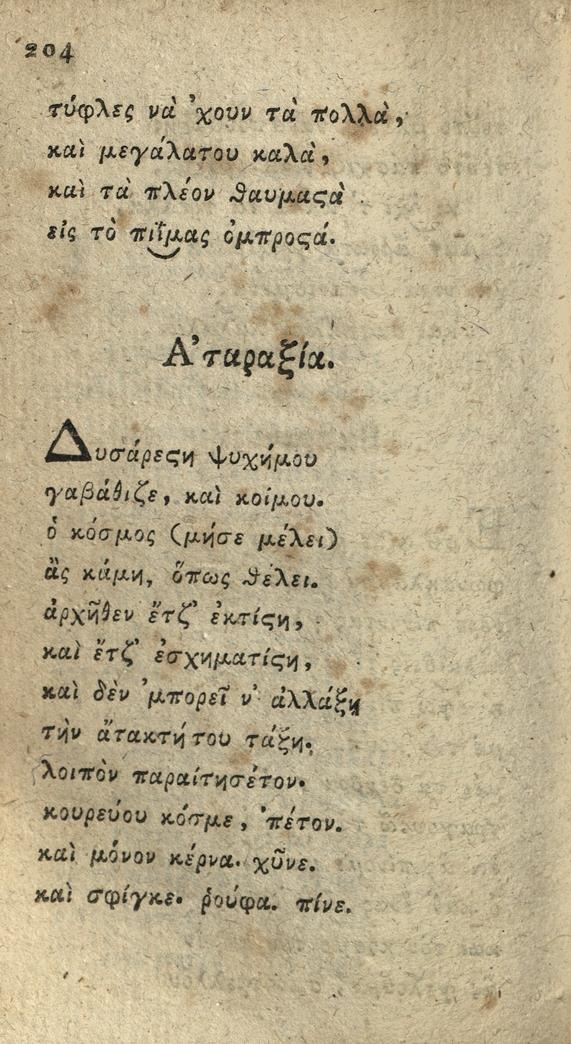 204
τύφλες νὰ ’χουν τὰ πολλὰ,
καὶ μεγάλατου καλὰ,
καὶ τὰ πλέον θαυμαϛὰ
εἰς τὸ πιῖμας ὀμπροϛά.
Α’ταραξία.
Δυσάρεϛη ψυχήμου
γαβάθιζε, καὶ κοίμου.
ὁ κόσμος (μήσε μέλει)
ἂς κάμη, ὅπως θέλει.
ἀρχῆθεν ἔτζ’ ἐκτίϛη,
καὶ ἔτζ’ ἐσχηματίϛη,
καὶ δὲν ’μπορεῖ ν’ ἀλλάξῃ
τὴν ἄτακτήτου τάξη.
λοιπὸν παραίτησέτον.
κουρεύου κόσμε, ’πέτον.
καὶ μόνον κέρνα. χῦνε.
καὶ σφίγκε. ῥούφα. πίνε.